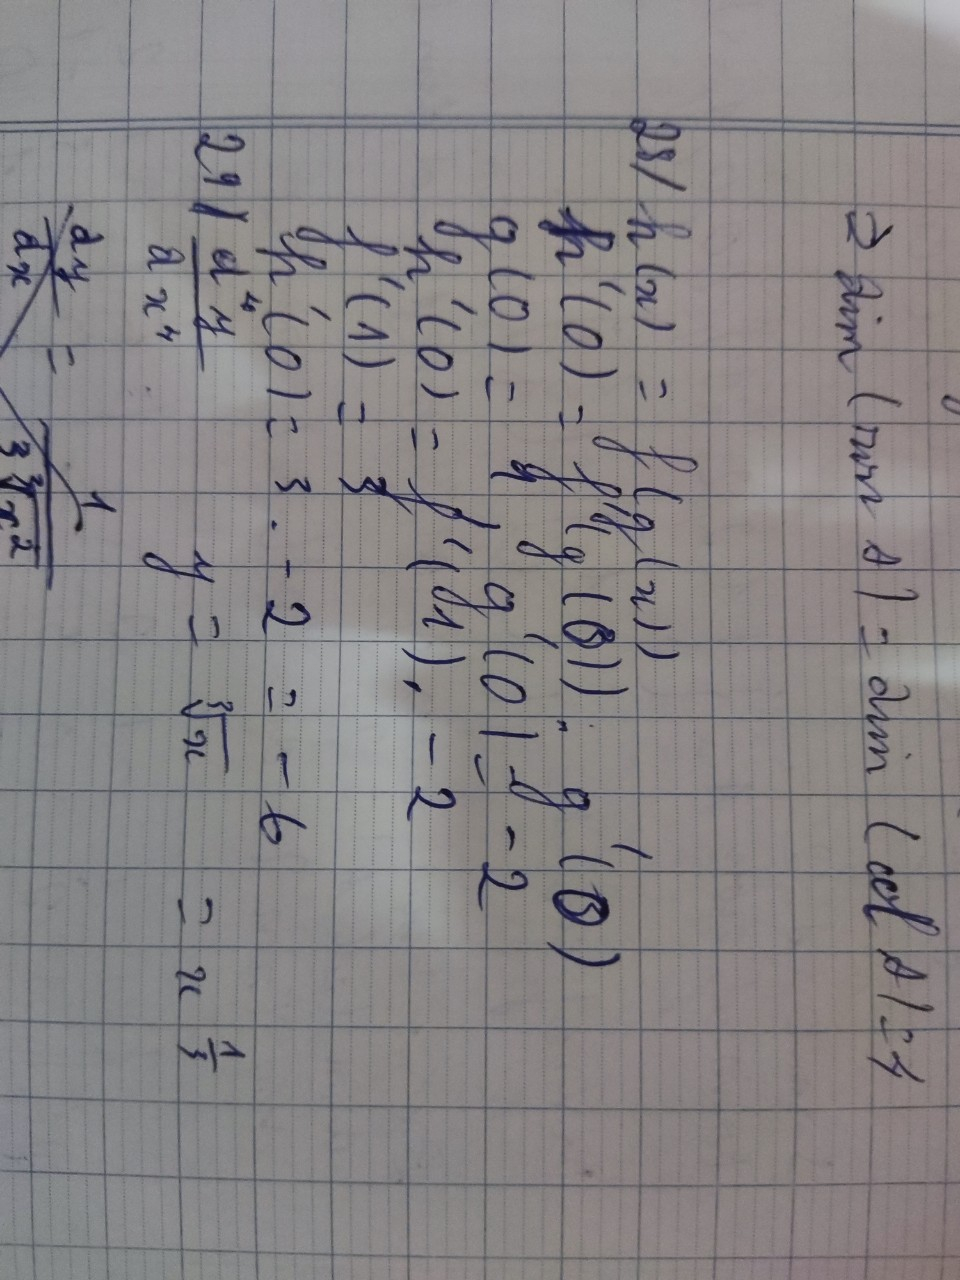 ⇒ dim (row A) = dim (col A) = 1
28/ h(x) = f(g(x))
h'(0) = f'(g(0)) . g'(0)
g(0) = 1 g'(0) = -2
h'(0) = f'(1) . -2
f'(1) = 3
h'(0) = 3 . -2 = -6
29/ d⁴y/dx⁴ y = ∛x = x^1/3
dy/dx = 1/3∛x²